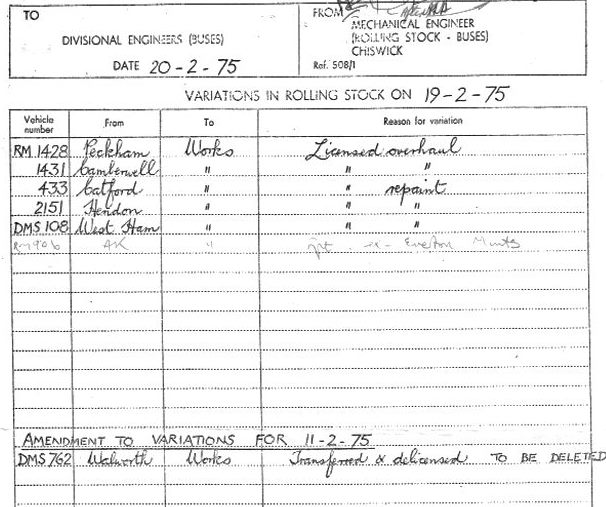 TO
DIVISIONAL ENGINEERS (BUSES)
DATE 20-2-75
FROM
MECHANICAL ENGINEER
(ROLLING STOCK - BUSES)
CHISWICK
Ref. 508/1
VARIATIONS IN ROLLING STOCK ON 19-2-75
Vehicle number From To Reason for variation
RM 1428 Peckham Works Licensed overhaul
1431 Camberwell " " "
433 Catford " " repaint
2151 Hendon " " "
DMS 108 West Ham " " "
RM 906 AK " rpt ex- Everton Mints
AMENDMENT TO VARIATIONS FOR 11-2-75
DMS 762 Walworth Works Transferred & delicensed TO BE DELETED